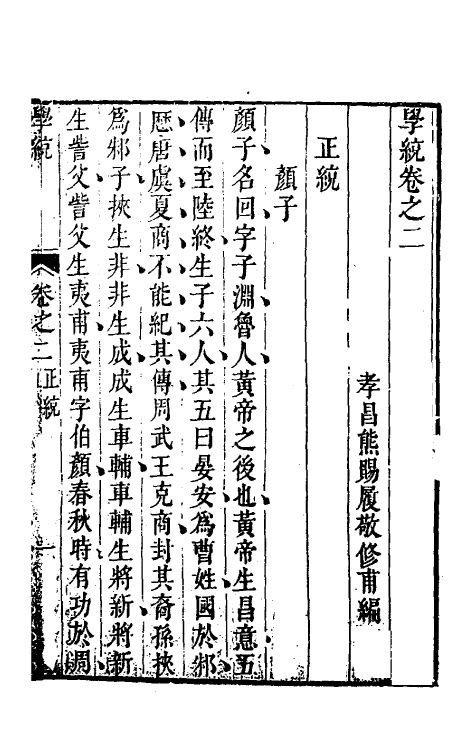 學統卷之二
孝昌熊賜履敬修甫編
正統
顏子
顏子名回字子淵魯人黃帝之後也黃帝生昌意五
傳而至陸終生子六人其五曰晏安為曹姓國於邾
歷唐虞夏商不能紀其傳周武王克商封其裔孫挾
為邾子挾生非非生成成生車輔車輔生將新將新
生訾父訾父生夷甫夷甫字伯顏春秋時有功於周
學統
卷之二
正統
一